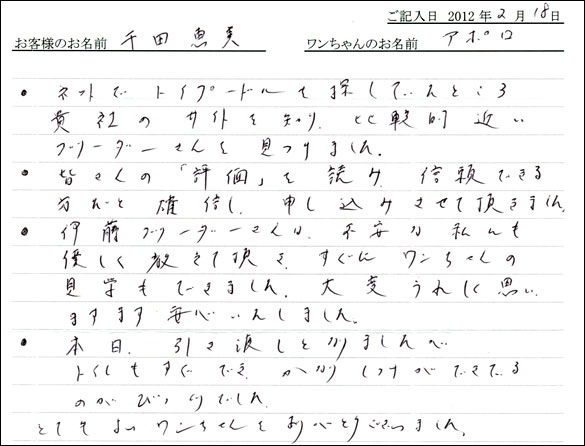 ご記入日 2012年2月18日
お客様のお名前 千田 恵美 ワンちゃんのお名前 アポロ
• ネットで トイプードルを探していたところ
貴社の サイトを知り、比較的近い
ブリーダーさんを見つけました。
• 皆さんの「評価」を読み、信頼できる
方だと確信し、申し込みさせて頂きました。
• 伊藤ブリーダーさんは、不安な私にも
優しく教えて頂き、すぐにワンちゃんの
見学もできました。大変うれしく思い、
ますます安心いたしました。
• 本日、引き渡しとなりましたが
トイレもすぐでき、かなりしつけができてる
のがびっくりでした。
とてもよいワンちゃんをありがとうございました。